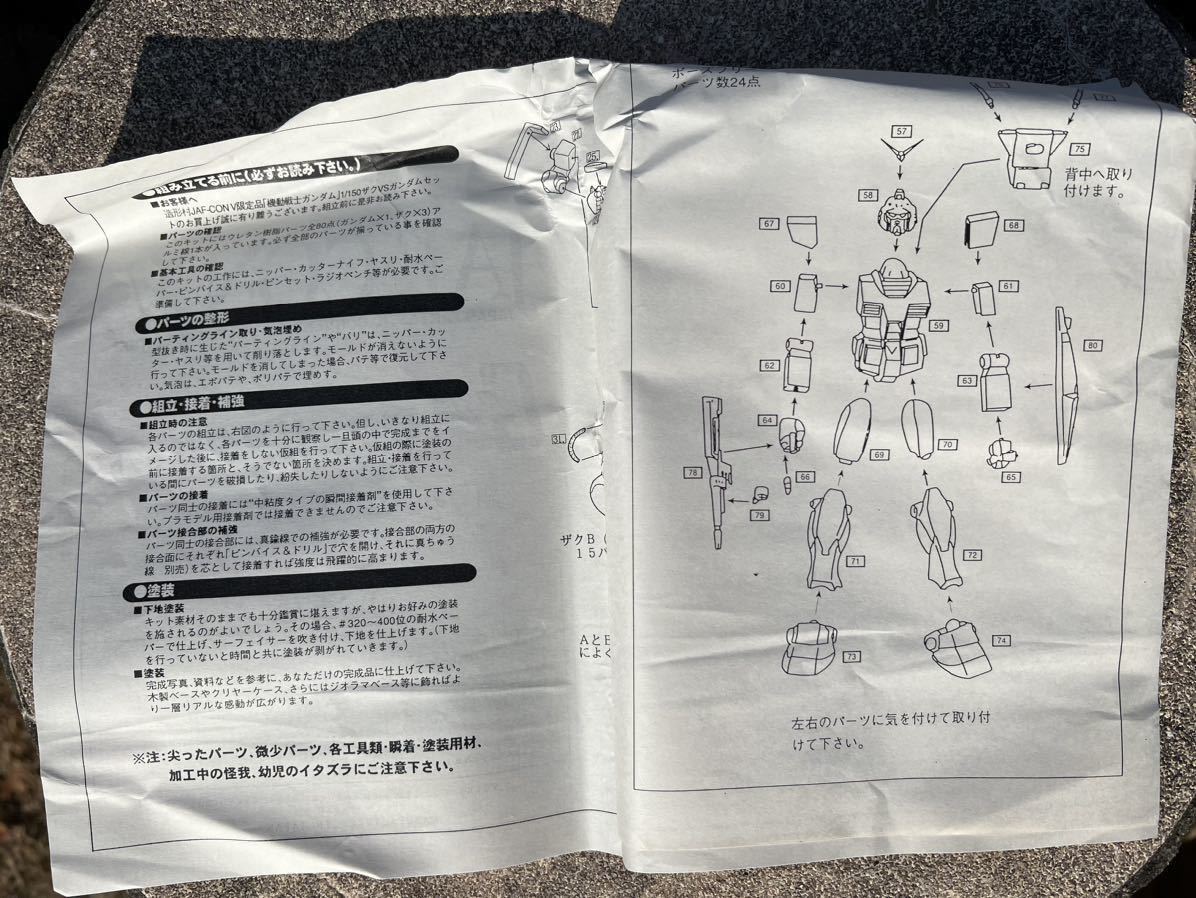 ●組み立てる前に(必ずお読み下さい。)
■お客様へ
造形村JAF-CON V限定品「機動戦士ガンダム」1/150ザクVSガンダムセッ
トのお買上げ誠に有り難うございます。組立前に是非お読み下さい。
■パーツの確認
このキットにはウレタン樹脂パーツ全80点(ガンダム×1、ザク×3)ア
ルミ線1本が入っています。必ず全部のパーツが揃っている事を確認
して下さい。
■基本工具の確認
このキットの工作には、ニッパー・カッターナイフ・ヤスリ・耐水ペー
パー・ピンバイス&ドリル・ピンセット・ラジオペンチ等が必要です。ご
準備して下さい。
●パーツの整形
■パーティングライン取り・気泡埋め
型抜き時に生じた“パーティングライン”や“バリ”は、ニッパー・カッ
ター・ヤスリ等を用いて削り落とします。モールドが消えないように
行って下さい。モールドを消してしまった場合、パテ等で復元して下さ
い。気泡は、エポパテや、ポリパテで埋めす。
●組立・接着・補強
■組立時の注意
各パーツの組立は、右図のように行って下さい。但し、いきなり組立に
入るのではなく、各パーツを十分に観察し一旦頭の中で完成までをイ
メージした後に、接着をしない仮組を行って下さい。仮組の際に塗装の
前に接着する箇所と、そうでない箇所を決めます。組立・接着を行って
いる間にパーツを破損したり、紛失したりしないようにご注意下さい。
■パーツの接着
パーツ同士の接着には“中粘度タイプの瞬間接着剤”を使用して下さ
い。プラモデル用接着剤では接着できませんのでご注意下さい。
■パーツ接合部の補強
パーツ同士の接合部には、真鍮線での補強が必要です。接合部の両方の
接合面にそれぞれ「ピンバイス&ドリル」で穴を開け、それに真ちゅう
線 別売)を芯として接着すれば強度は飛躍的に高まります。
●塗装
■下地塗装
キット素材そのままでも十分鑑賞に堪えますが、やはりお好みの塗装
を施されるのがよいでしょう。その場合、#320〜400位の耐水ペー
パーで仕上げ、サーフェイサーを吹き付け、下地を仕上げます。(下地
を行っていないと時間と共に塗装が剥がれていきます。)
■塗装
完成写真、資料などを参考に、あなただけの完成品に仕上げて下さい。
木製ベースやクリヤーケース、さらにはジオラマベース等に飾ればよ
り一層リアルな感動が広がります。
※注:尖ったパーツ、微少パーツ、各工具類・瞬着・塗装用材、
加工中の怪我、幼児のイタズラにご注意下さい。
23
25
31
ザクB(
15パ
AとB
によく
パーツ数24点
57
75
背中へ取り
付けます。
58
67
68
60
61
59
80
62
63
64
69
70
78
66
65
79
71
72
73
74
左右のパーツに気を付けて取り付
けて下さい。